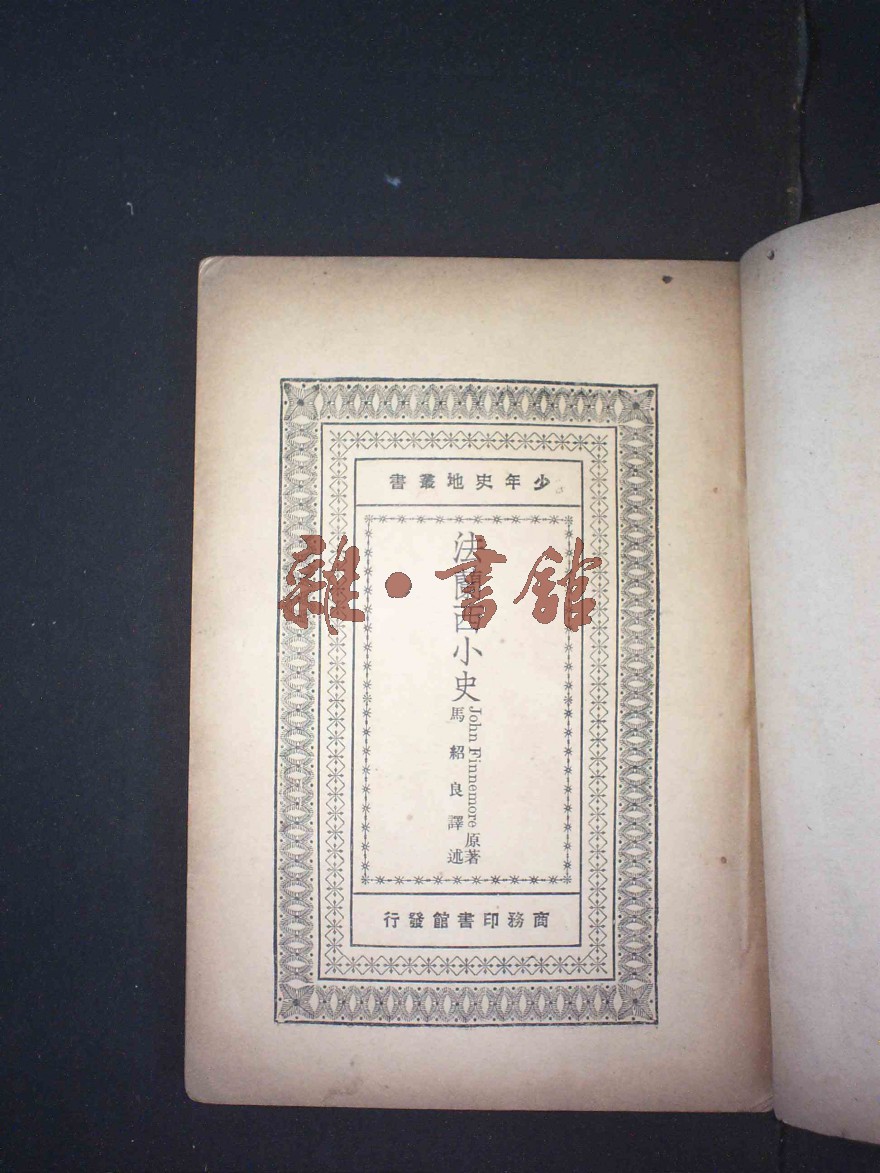 少年史地叢書
法蘭西小史
John Finnemore 原著
馬紹良譯述
商務印書館發行
雜·書館